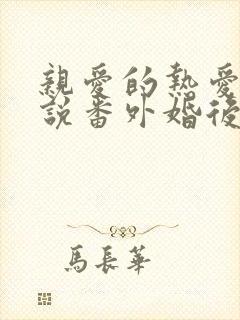 親愛的熱愛
說番外婚後
馬長華